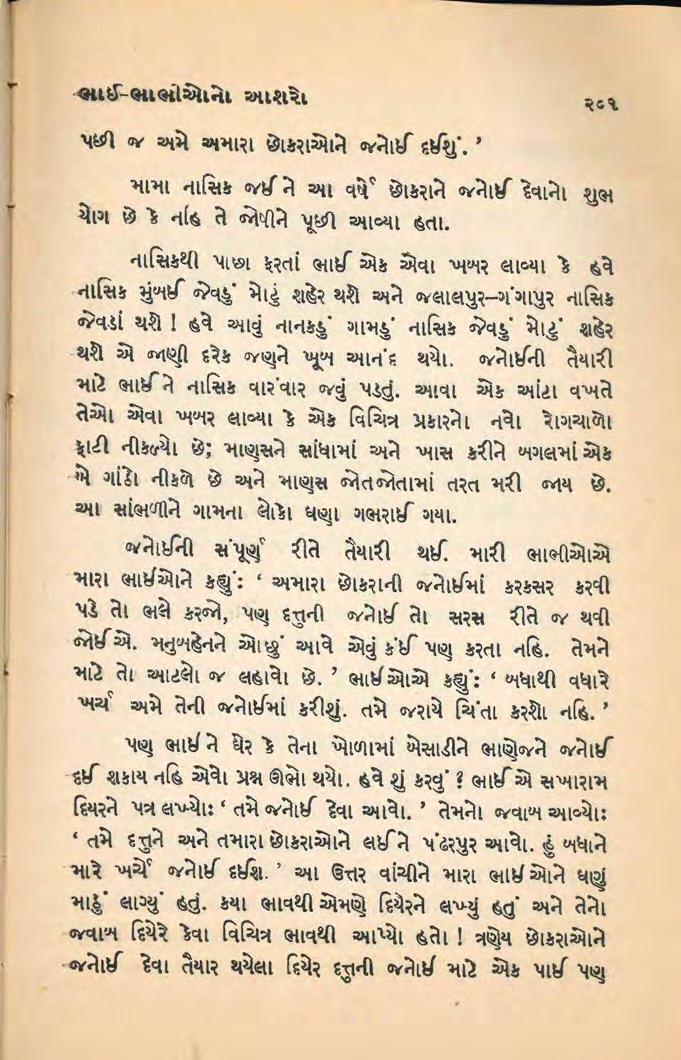 ભાઈ-ભાભીઓનો આશરો ૨૦૧
પછી જ અમે અમારા છોકરાઓને જનોઈ દઈશું. ’
મામા નાસિક જઈને આ વર્ષે છોકરાને જનોઈ દેવાનો શુભ
યોગ છે કે નહિ તે જોષીને પૂછી આવ્યા હતા.
નાસિકથી પાછા ફરતાં ભાઈ એક એવા ખબર લાવ્યા કે હવે
નાસિક મુંબઈ જેવડું મોટું શહેર થશે અને જલાલપુર–ગંગાપુર નાસિક
જેવડાં થશે ! હવે આવું નાનકડું ગામડું નાસિક જેવડું મોટું શહેર
થશે એ જાણી દરેક જણને ખૂબ આનંદ થયો. જનોઈની તૈયારી
માટે ભાઈને નાસિક વારંવાર જવું પડતું. આવા એક આંટા વખતે
તેઓ એવા ખબર લાવ્યા કે એક વિચિત્ર પ્રકારનો નવો રોગચાળો
ફાટી નીકળ્યો છે; માણસને સાંધામાં અને ખાસ કરીને બગલમાં એક
બે ગાંઠો નીકળે છે અને માણસ જોતજોતામાં તરત મરી જાય છે.
આ સાંભળીને ગામના લોકો ઘણા ગભરાઈ ગયા.
જનોઈની સંપૂર્ણ રીતે તૈયારી થઈ. મારી ભાભીઓએ
મારા ભાઈઓને કહ્યું: ‘ અમારા છોકરાની જનોઈમાં કરકસર કરવી
પડે તો ભલે કરજો, પણ દત્તુની જનોઈ તો સરસ રીતે જ થવી
જોઈએ. મનુબહેનને ઓછું આવે એવું કંઈ પણ કરતા નહિ. તેમને
માટે તો આટલો જ લહાવો છે. ’ ભાઈઓએ કહ્યું: ‘ બધાથી વધારે
ખર્ચ અમે તેની જનોઈમાં કરીશું. તમે જરાયે ચિંતા કરશો નહિ. ’
પણ ભાઈને ઘેર કે તેના ખોળામાં બેસાડીને ભાણેજને જનોઈ
દઈ શકાય નહિ એવો પ્રશ્ન ઊભો થયો. હવે શું કરવું ? ભાઈએ સખારામ
દિયરને પત્ર લખ્યો: ‘ તમે જનોઈ દેવા આવો. ’ તેમનો જવાબ આવ્યો:
‘ તમે દત્તુને અને તમારા છોકરાઓને લઈને પંઢરપુર આવો. હું બધાને
મારે ખર્ચે જનોઈ દઈશ. ’ આ ઉત્તર વાંચીને મારા ભાઈઓને ઘણું
માઠું લાગ્યું હતું. કયા ભાવથી એમણે દિયેરને લખ્યું હતું અને તેનો
જવાબ દિયેરે કેવા વિચિત્ર ભાવથી આપ્યો હતો ! ત્રણેય છોકરાઓને
જનોઈ દેવા તૈયાર થયેલા દિયેર દત્તુની જનોઈ માટે એક પાઈ પણ